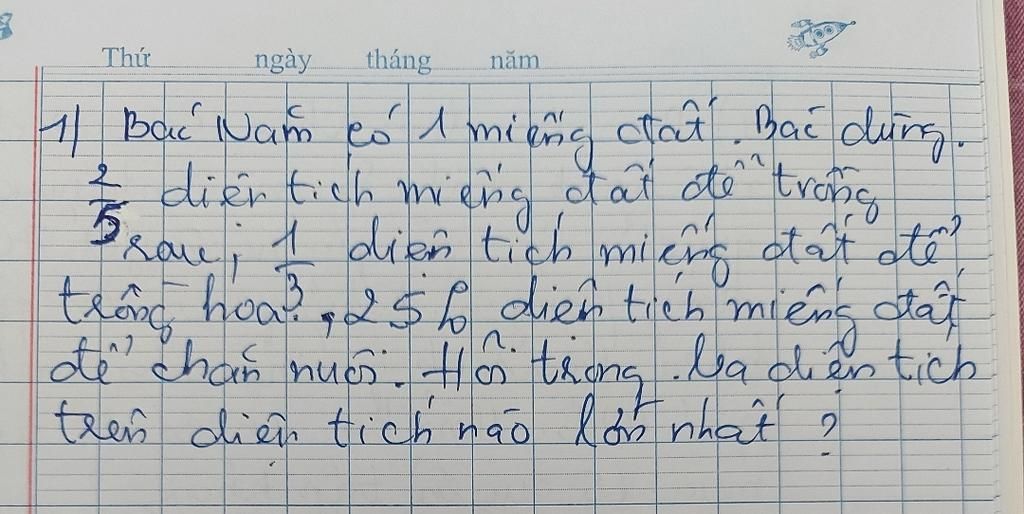 Thứ ngày tháng năm
1) Bác Năm có 1 miếng đất. Bác dùng.
2/5 diện tích miếng đất để trồng
rau; 1/3 diện tích miếng đất để
trồng hoa, 25% diện tích miếng đất
để chăn nuôi. Hỏi trong. Ba diện tích
trên diện tích nào lớn nhất ?